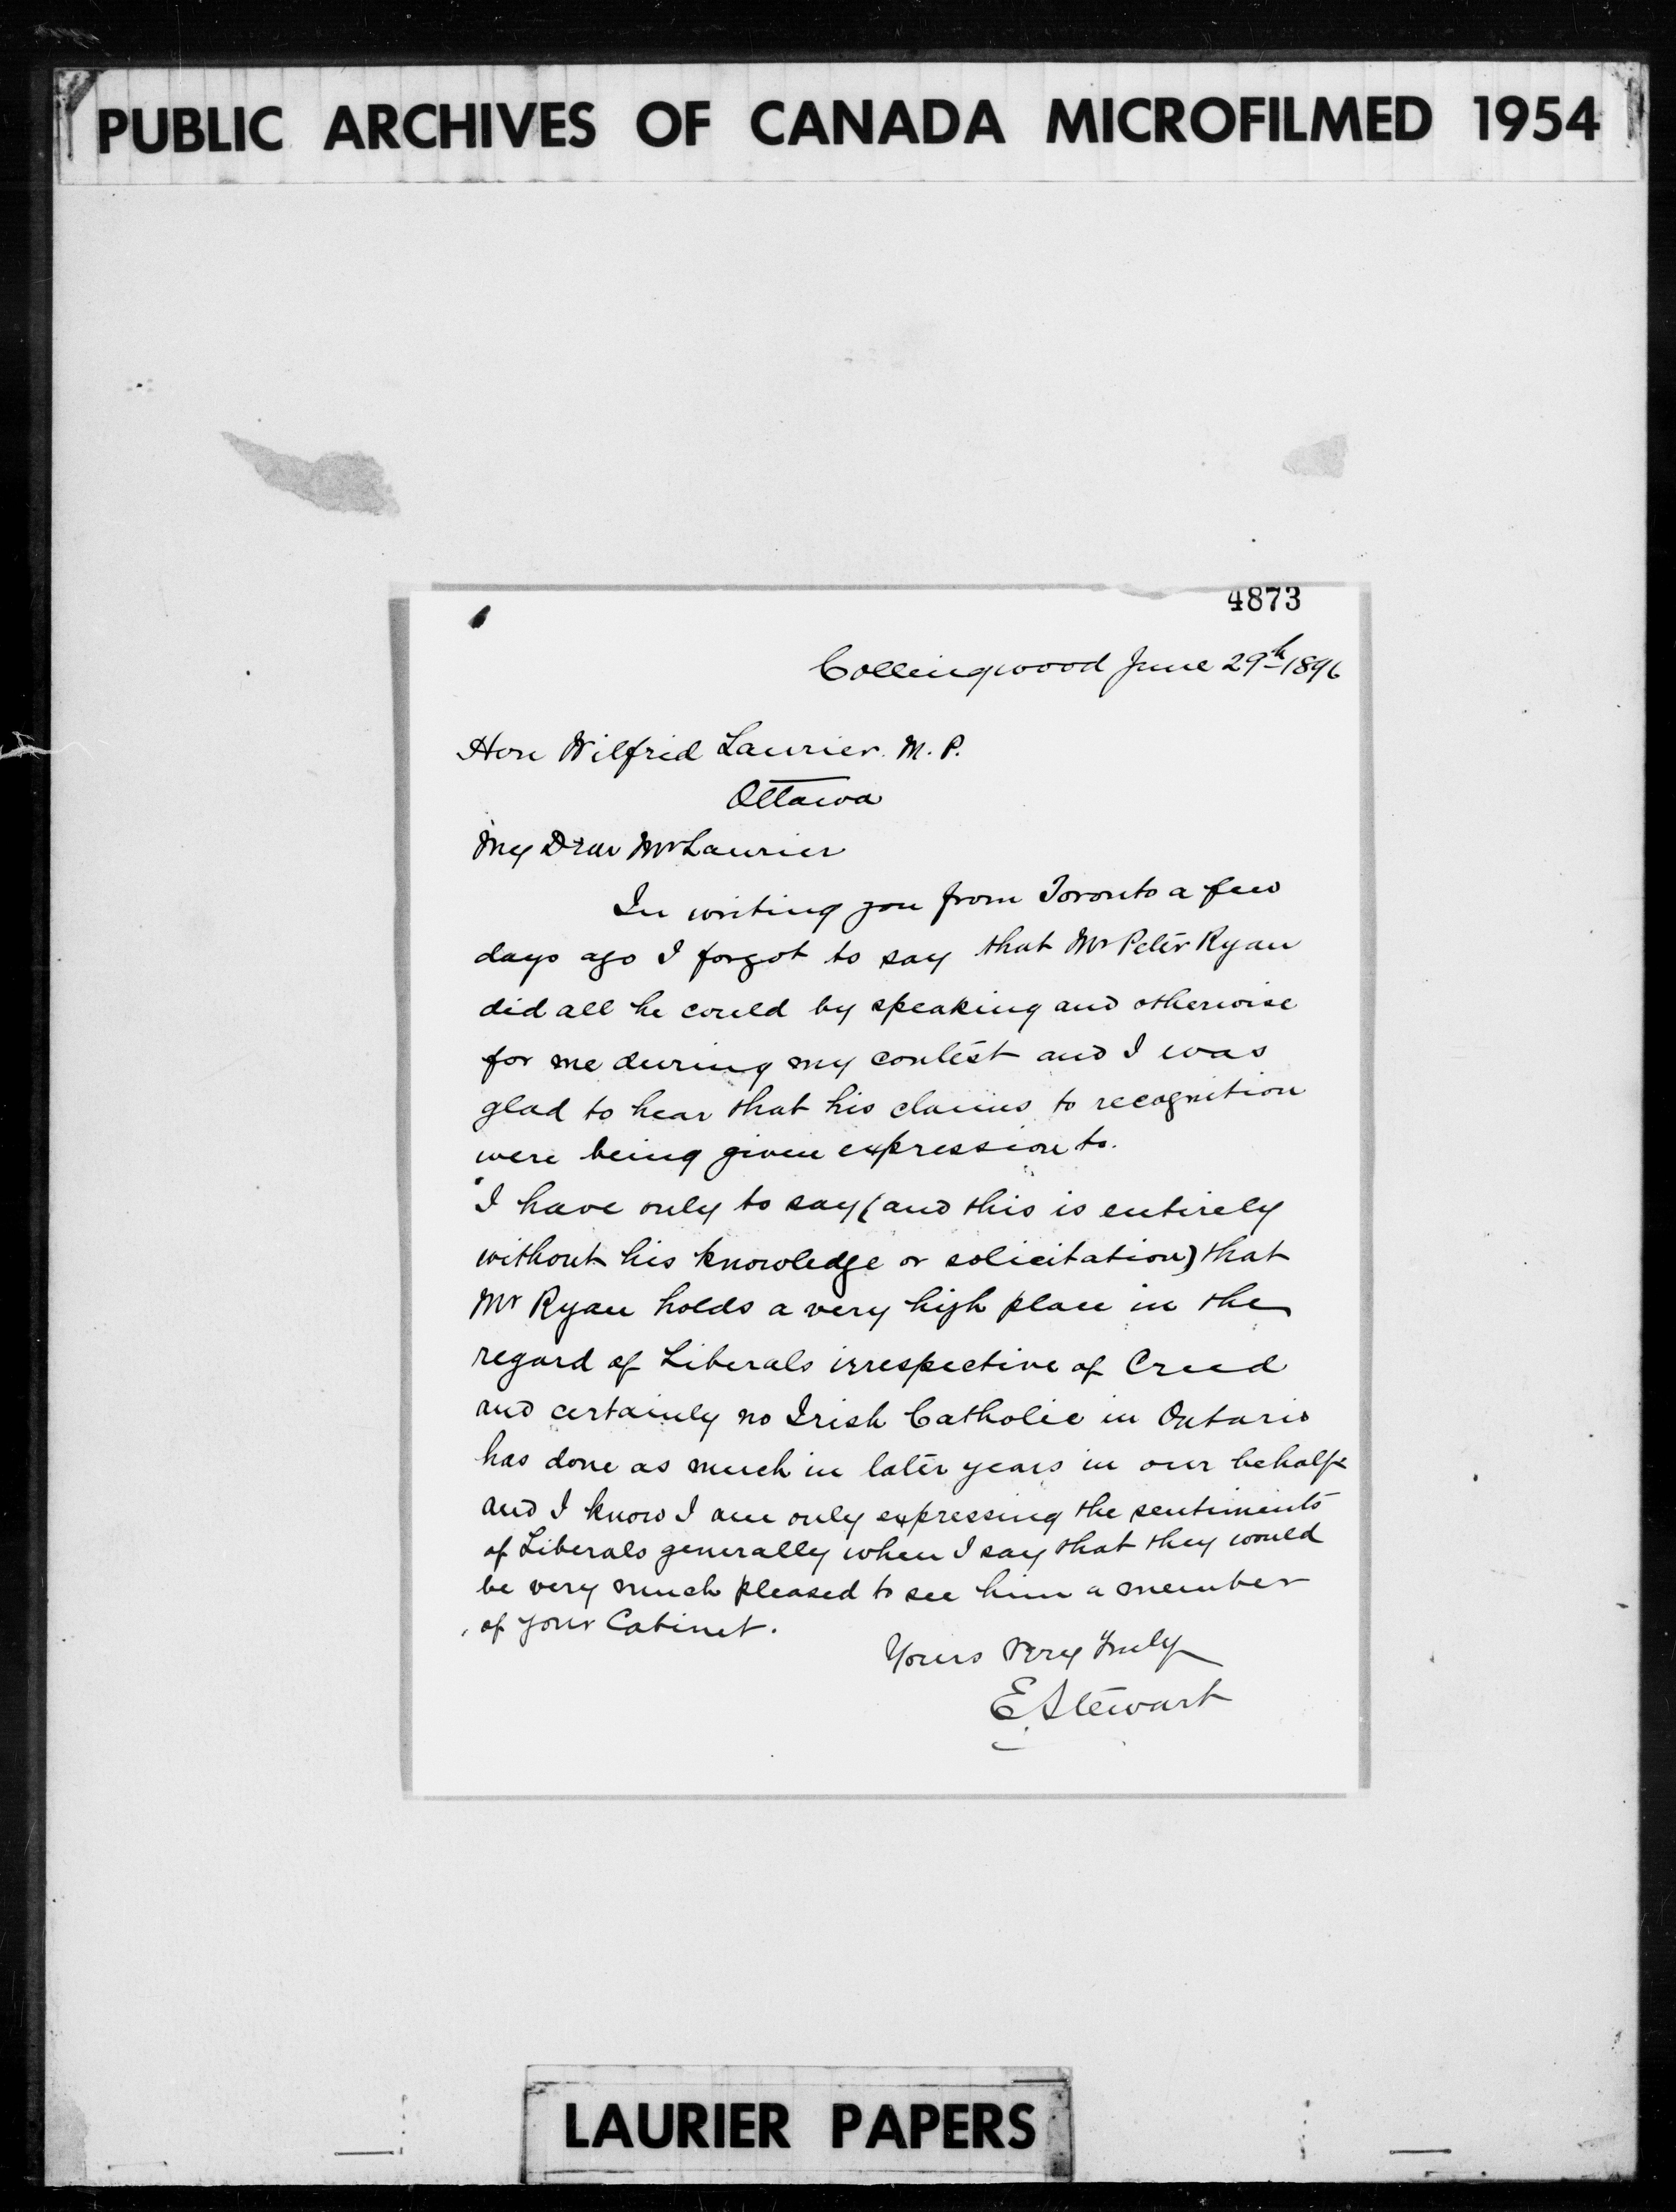 PUBLIC ARCHIVES OF CANADA MICROFILMED 1954
4873
Collingwood June 29th 1896
Hon Wilfrid Laurier. M. P.
Ottawa
My Dear Mr Laurier
In writing you from Toronto a few
days ago I forgot to say that Mr Peter Ryan
did all he could by speaking and otherwise
for me during my contest and I was
glad to hear that his claims to recognition
were being given expression to.
I have only to say (and this is entirely
without his knowledge or solicitation) that
Mr Ryan holds a very high place in the
regard of Liberals irrespective of Creed
and certainly no Irish Catholic in Ontario
has done as much in later years in our behalf
and I know I am only expressing the sentiments
of Liberals generally when I say that they would
be very much pleased to see him a member
of your Cabinet.
Yours Very Truly
E Stewart
LAURIER PAPERS